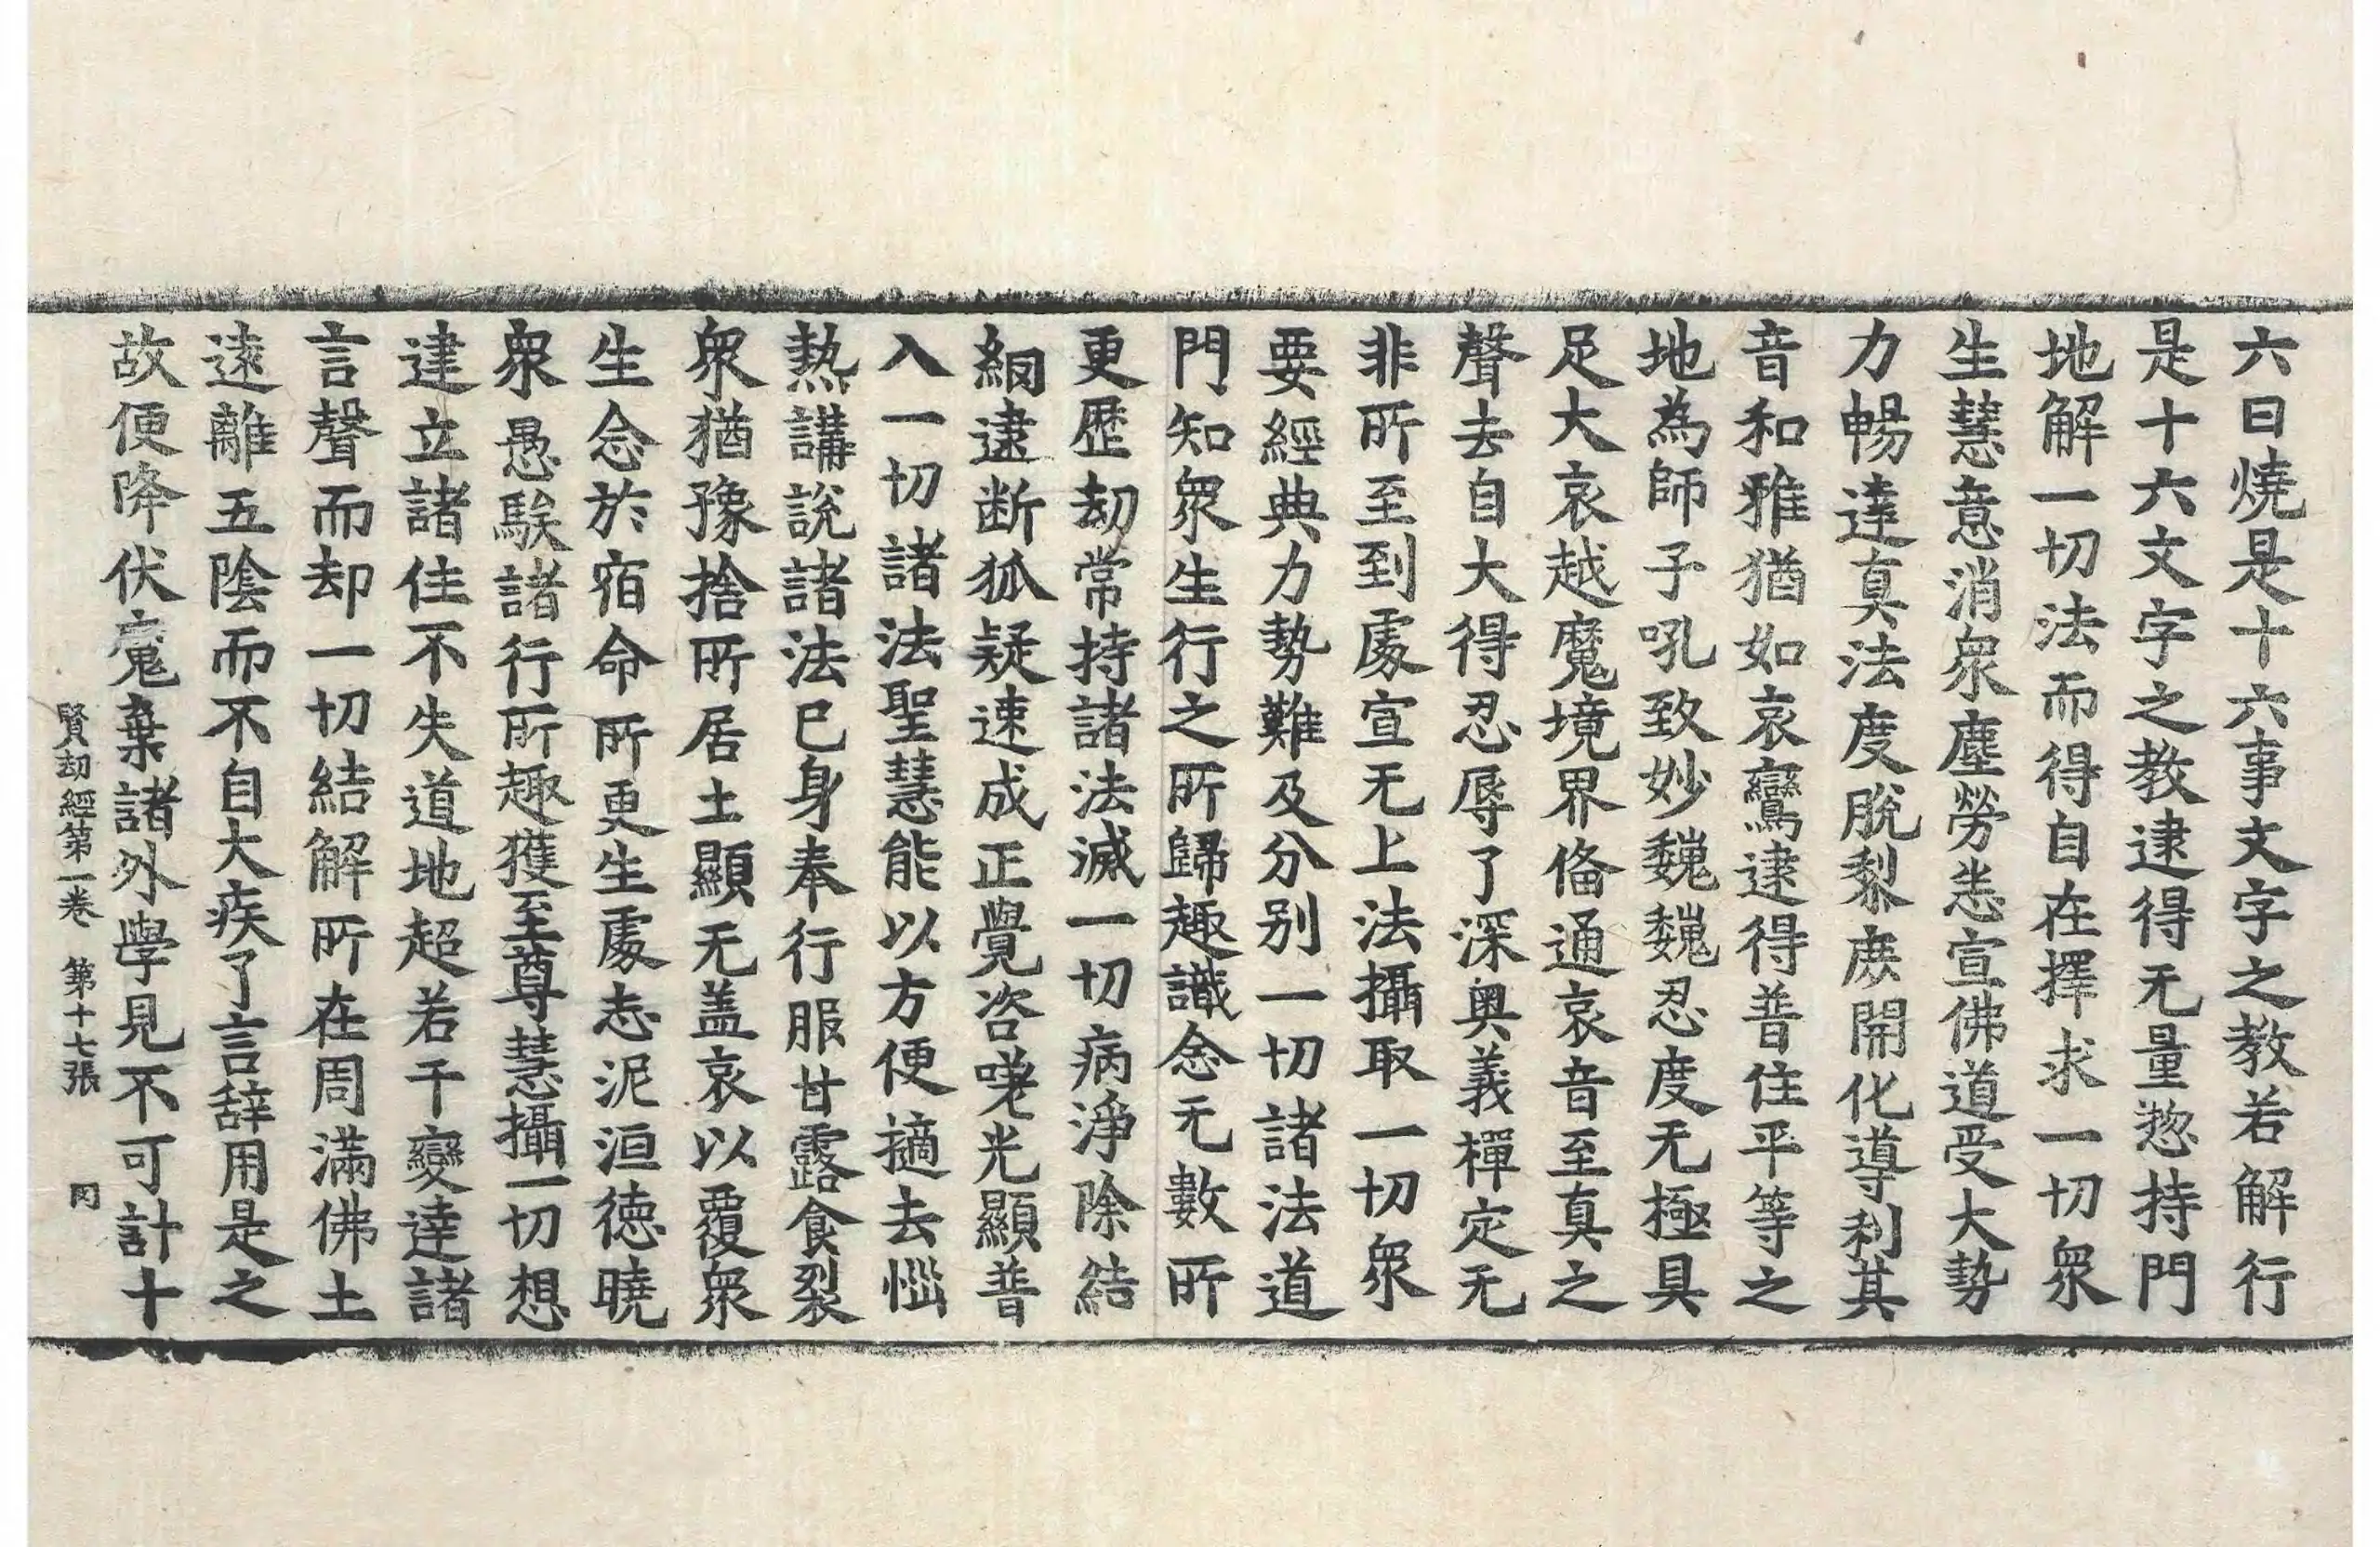 六曰燒是十六事文字之教若解行
是十六文字之教逮得无量惣持門
地解一切法而得自在擇求一切衆
生慧意消衆塵勞恙宣佛道受大勢
力暢達真法度脫黎庶開化導利其
音和雅猶如哀鸞逮得普住平等之
地為師子吼致妙巍巍忍度无極具
足大哀越魔境界俻通哀音至真之
聲去自大得忍辱了深奥義禪定无
非所至到處宣无上法攝取一切衆
要經典力勢難及分别一切諸法道
門知衆生行之所歸趣識念无數所
更歷劫常持諸法滅一切病淨除結
網逮断狐疑速成正覺咨嗟光顯普
入一切諸法聖慧能以方便擿去惱
熱講說諸法已身奉行服甘露食裂
衆猶豫捨所居土顯无盖哀以覆衆
生念於宿命所更生處志泥洹德曉
衆愚騃諸行所趣獲至尊慧攝一切想
建立諸住不失道地超若干變達諸
言聲而却一切結解所在周滿佛土
遠離五陰而不自大疾了言辭用是之
故便降伏魔棄諸外學見不可計十
賢劫經第一卷 第十七張 罔